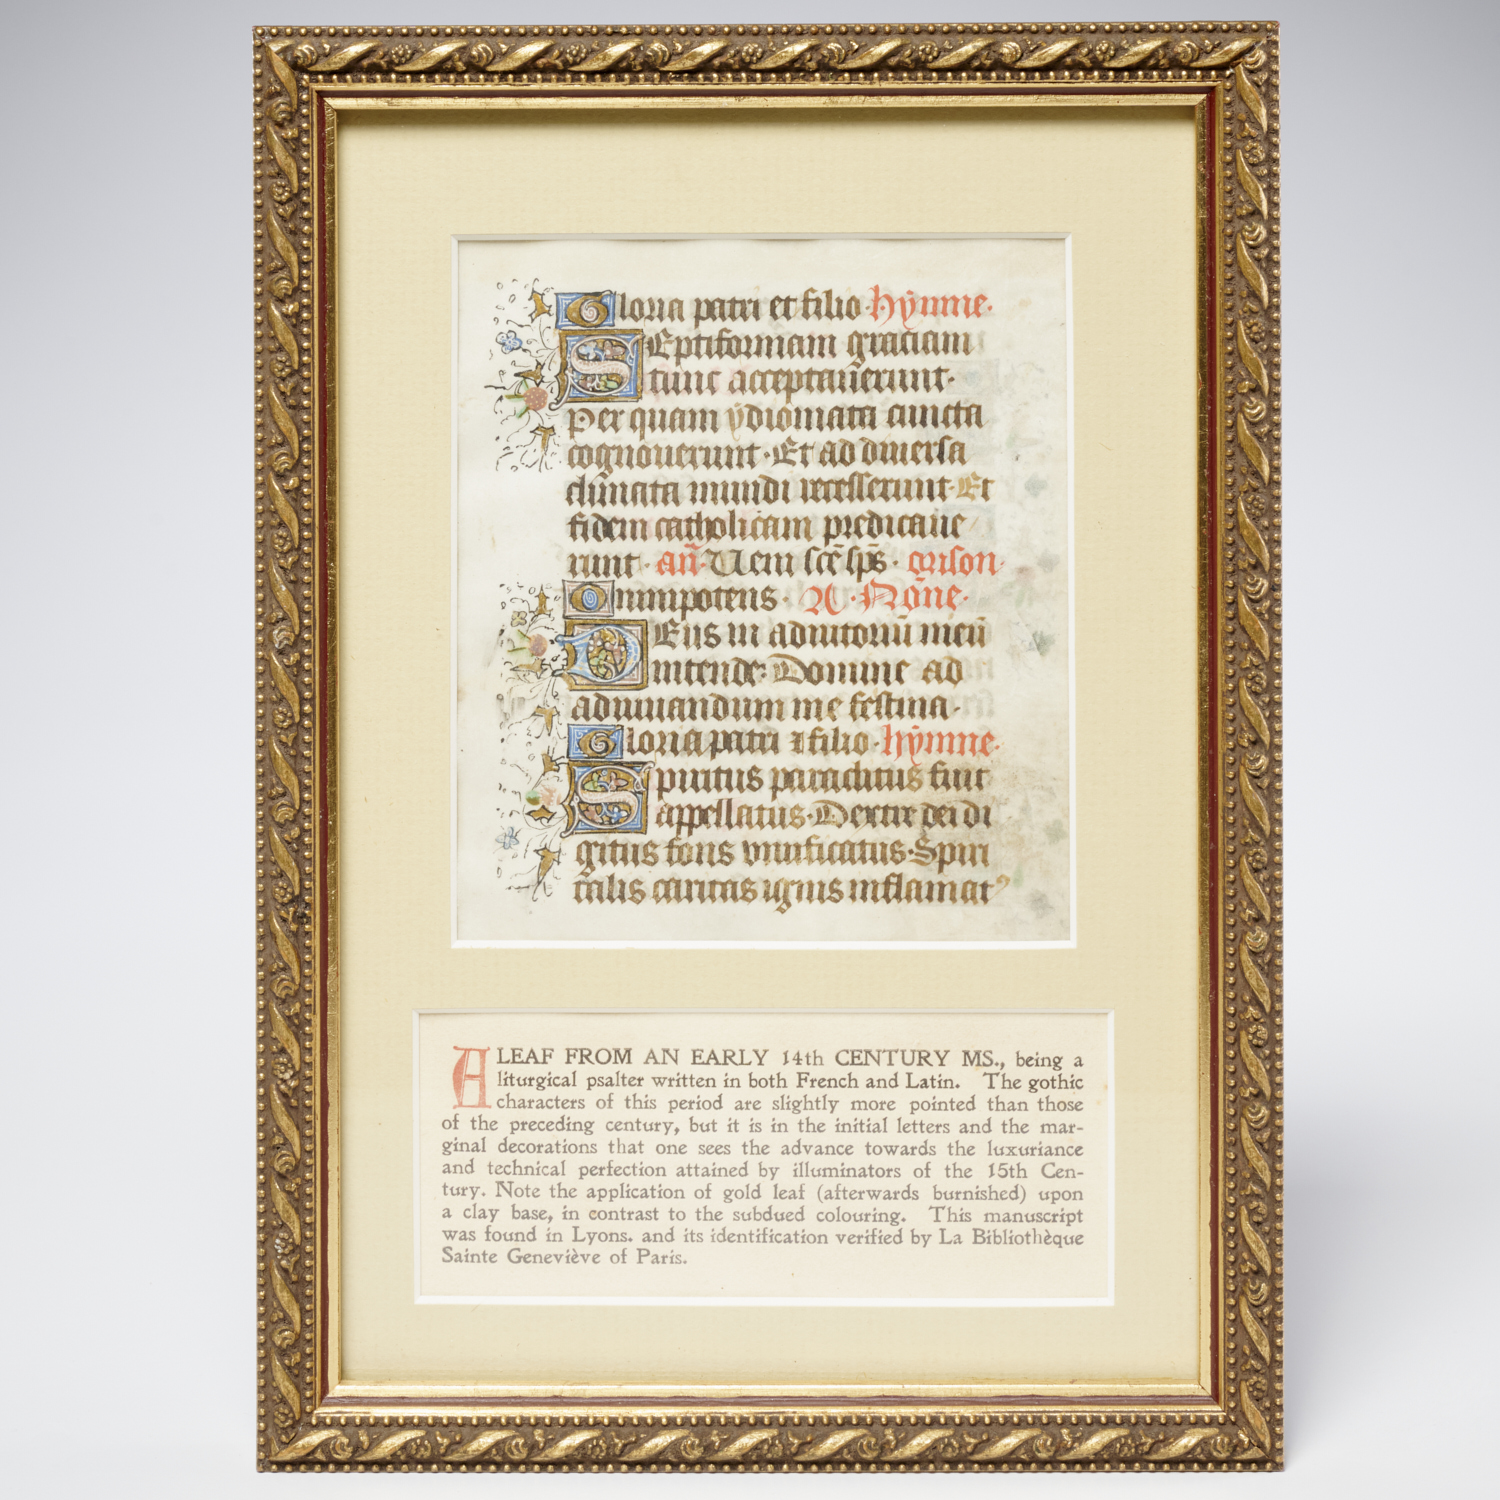 Gloria patri et filio. hÿmne.
SEptiformam graciam
tunc acceptauerunt.
Per quam ÿdiomata cuncta
cognouerunt. Et ad diuersa
climata mundi recesserunt. Et
fidem catholicam predicaue
runt. añ. Ueni scẽ sp̃s. orison.
Omnipotens. A. None.
DEus in adiutoriũ meũ
intende. Domine ad
adiuuandum me festina.
Gloria patri et filio. hÿmne.
Spiritus paraclitus fuit
appellatus. Dextre dei di
gitus fons viuificatus. Spiri
talis caritas ignis inflamatꝰ
A LEAF FROM AN EARLY 14th CENTURY MS., being a
liturgical psalter written in both French and Latin. The gothic
characters of this period are slightly more pointed than those
of the preceding century, but it is in the initial letters and the mar-
ginal decorations that one sees the advance towards the luxuriance
and technical perfection attained by illuminators of the 15th Cen-
tury. Note the application of gold leaf (afterwards burnished) upon
a clay base, in contrast to the subdued colouring. This manuscript
was found in Lyons. and its identification verified by La Bibliothèque
Sainte Geneviève of Paris.